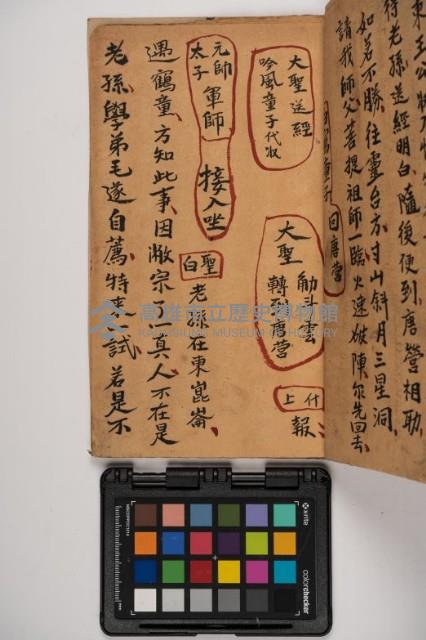 東王公將
待老孫送經明白、隨後便到唐營相助、
如若不勝、往靈台方寸山斜月三星洞、
請我師父菩提祖師一臨、火速破陳、尔先回去、
回唐營
大聖送經
吟風童子代收
大聖 觔斗雲
轉到唐營
什上
報
聖白
老孫在東崑崙、
元帥
太子
軍師
接入坐
遇鶴童、方知此事、因敝宗了一真人不在是
老孫學弟毛遂自薦、特來試、若是不
高雄市立歷史博物館
KAOHSIUNG MUSEUM OF HISTORY
x-rite
colorchecker